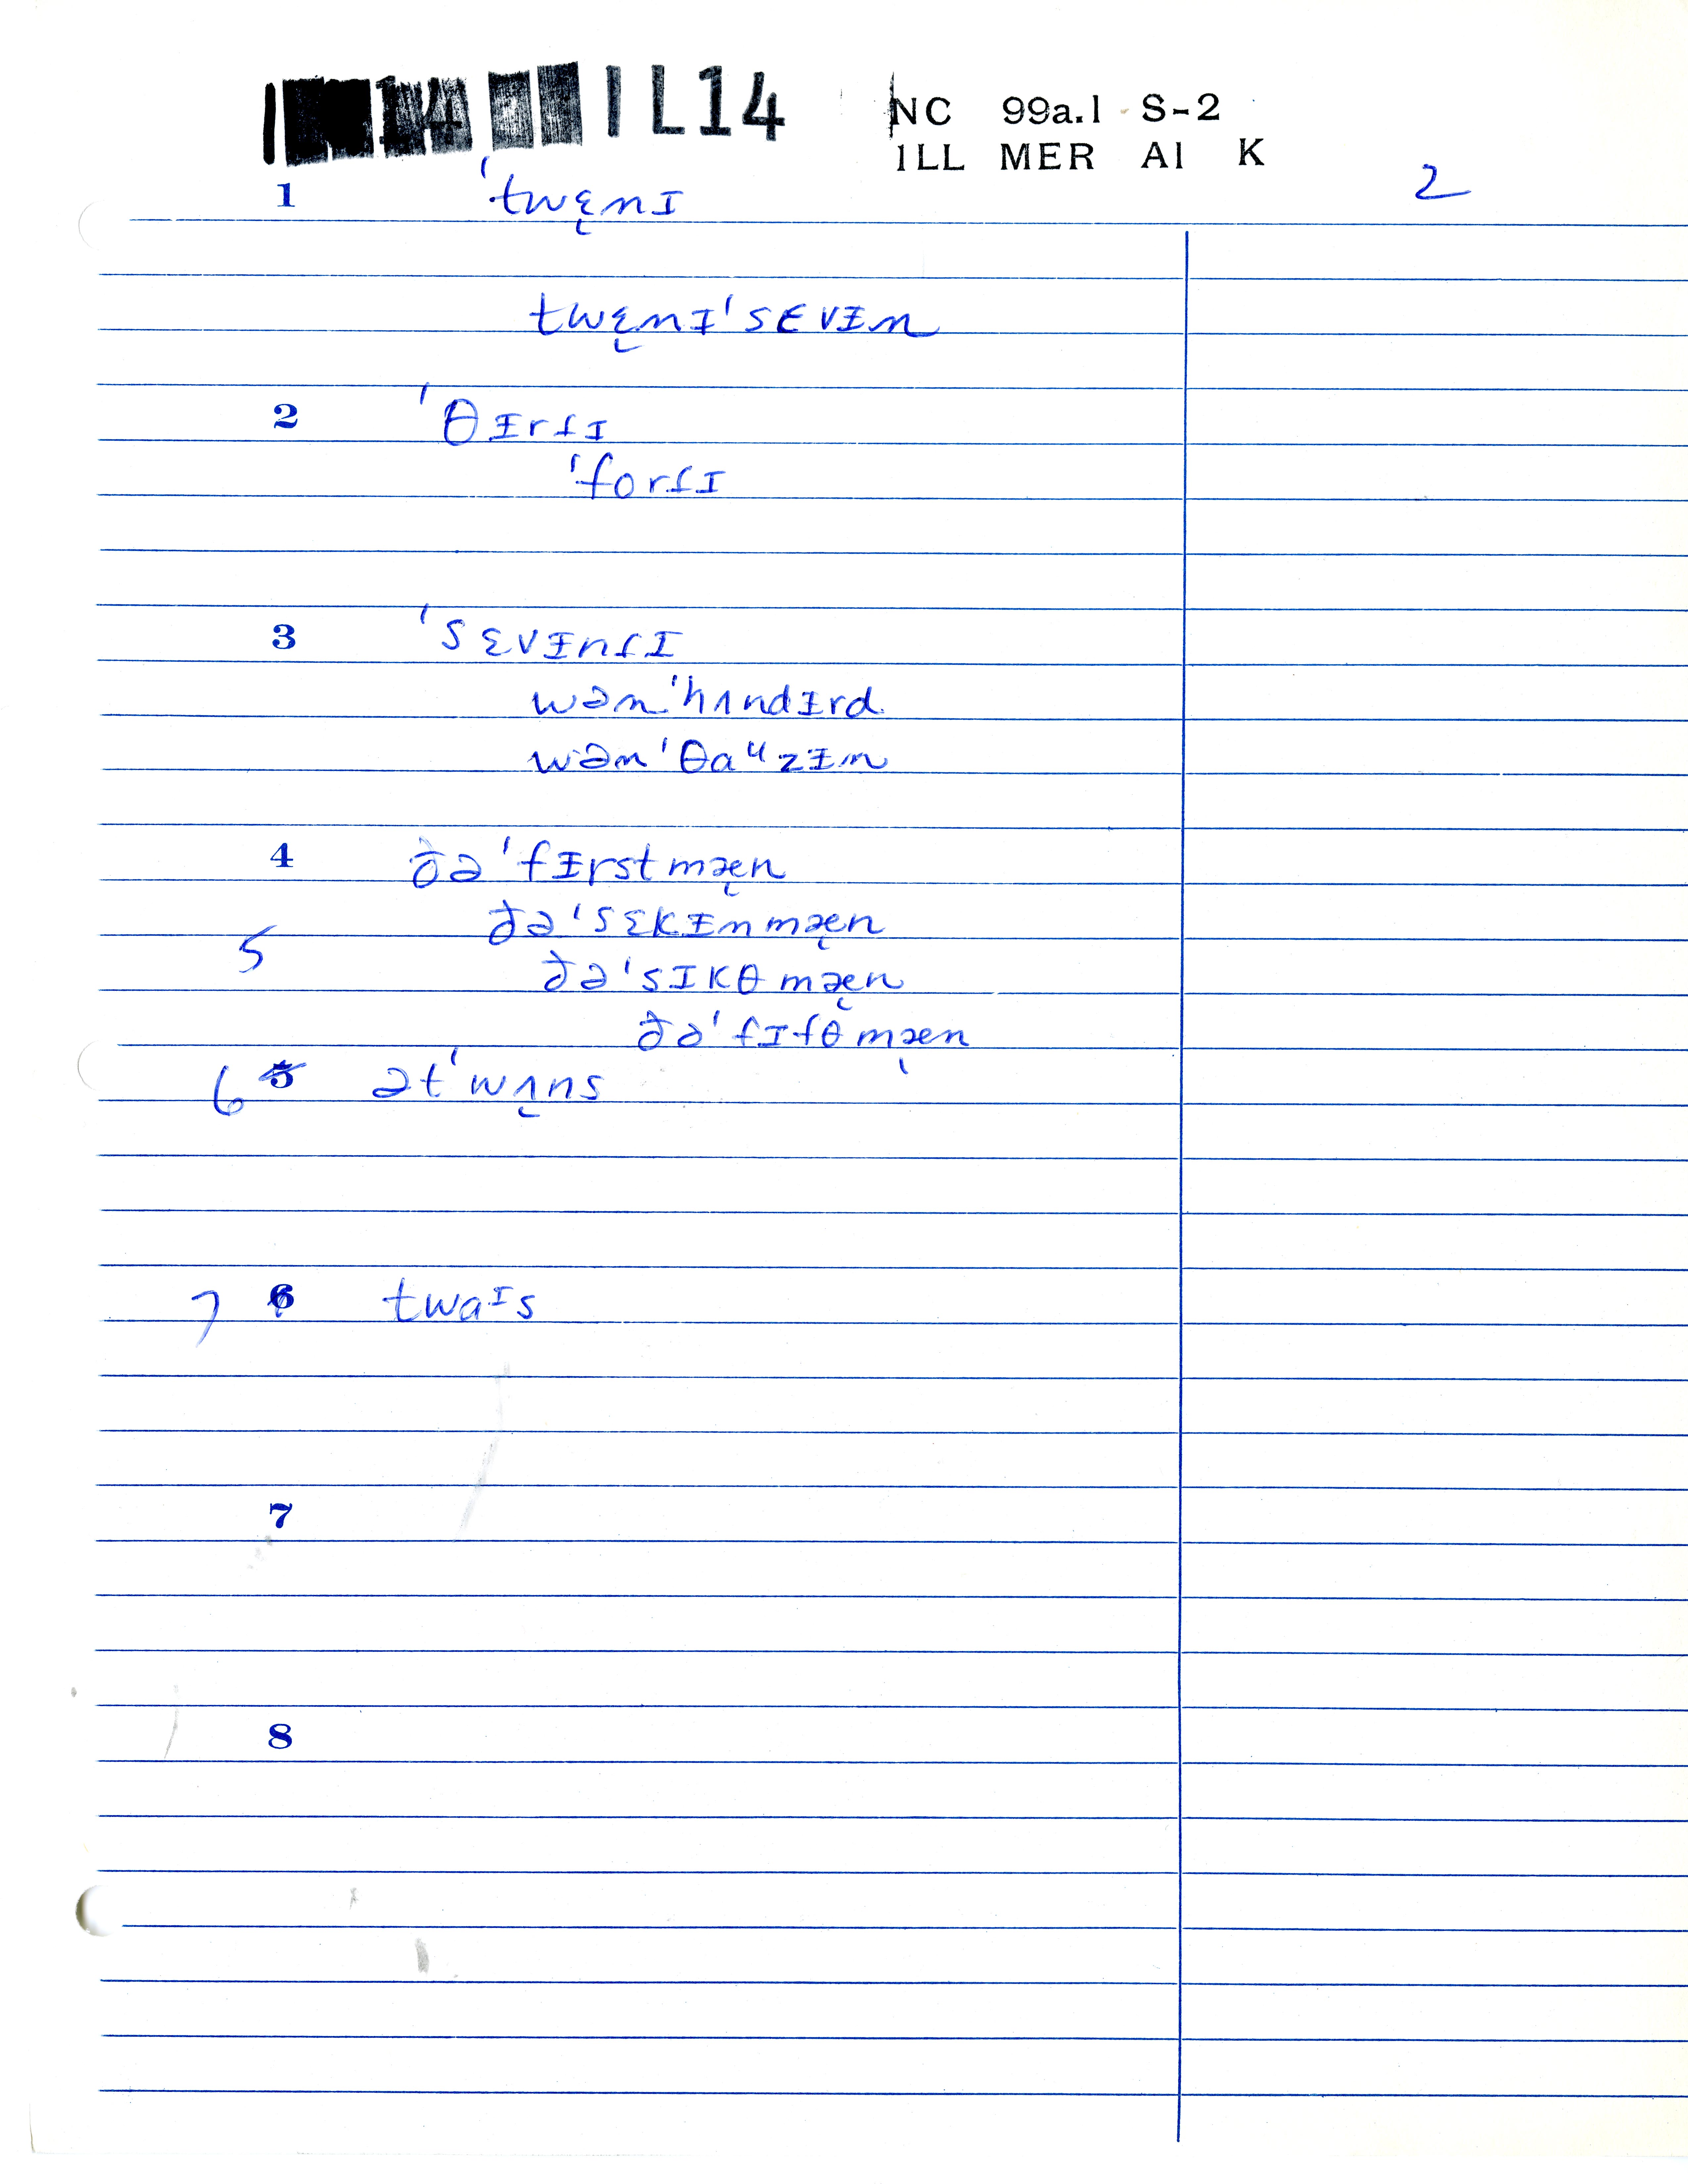 14 IL14 NC 99a.1 S-2
ILL MER A1 K
2
1 ˈtwɛ̨nɪ
twɛ̨nɪˈsɛvɪ̵n
2 ˈθɪ̵rɾɪ
ˈforɾɪ
3 ˈsɛvɪ̵nɾɪ
wənˈhʌndɪ̵rd
wənˈθaᶸzɪ̵n
4 ðəˈfɪ̵rstmæ̨n
ðəˈsɛkɪ̵nmæ̨n
5 ðəˈsɪkθmæ̨n
ðəˈfɪfθmæ̨n
6 5 ətˈwʌ̨ns
7 6 twaᶦs
7
8